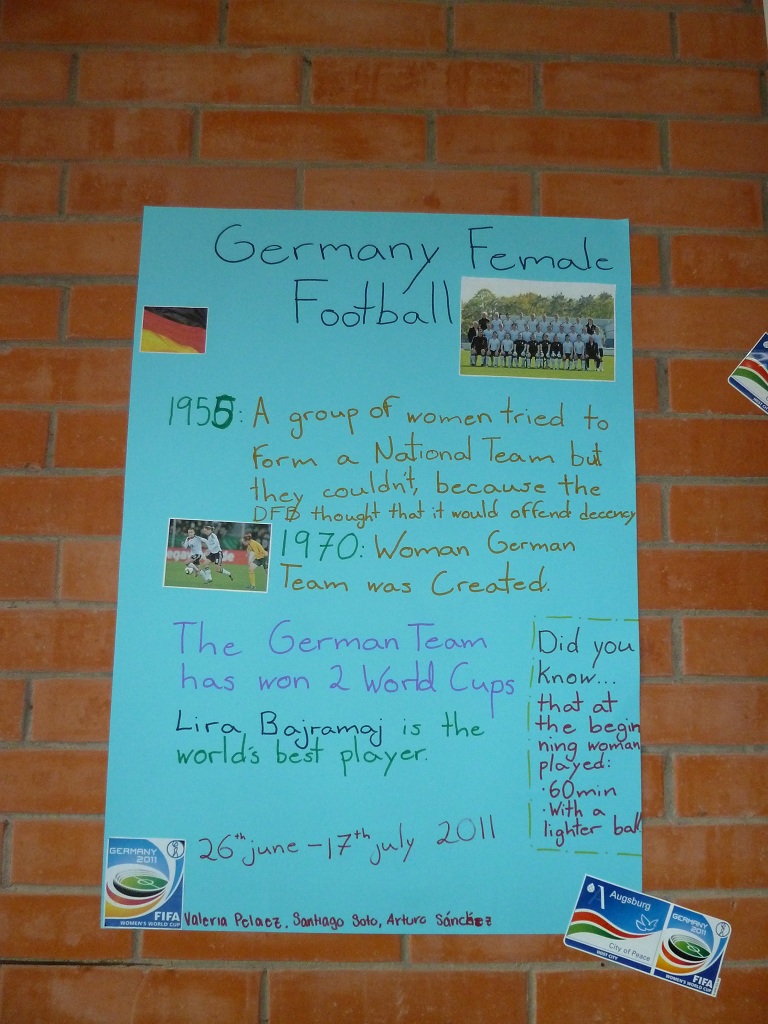 Germany Female
Football
1955: A group of women tried to
form a National Team but
they couldn't, because the
DFB thought that it would offend decency
1970: Woman German
Team was Created.
The German Team
has won 2 World Cups
Lira Bajramaj is the
world's best player.
Did you
know...
that at
the begin
ning woman
played:
·60min
·With a
lighter ball
26th june - 17th july 2011
GERMANY
2011
FIFA
WOMEN'S WORLD CUP
Valeria Pelaez, Santiago Soto, Arturo Sánchez
Augsburg
City of Peace
HOST CITY
GERMANY
2011
FIFA
WOMEN'S WORLD CUP